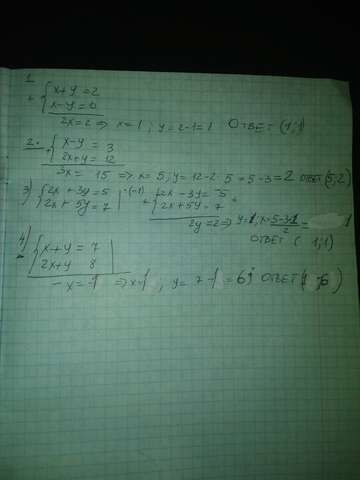 1
{x+y=2
+ {x-y=0
2x=2 => x=1; y=2-1=1 ОТВЕТ (1;1)
2. {x-y = 3
+ {2x+y=12
3x= 15 => x=5; y=12-2·5 = 5-3=2 ОТВЕТ (5;2)
3) {2x+3y=5 |·(-1) {-2x-3y=-5
{2x+5y=7 + {2x+5y=7
2y=2 => y=1; x=5-3·1/2=1
ОТВЕТ (1;1)
4) {x+y=7
- {2x+y 8
-x=-1 => x=1; y=7-1=6; ОТВЕТ (1;6)